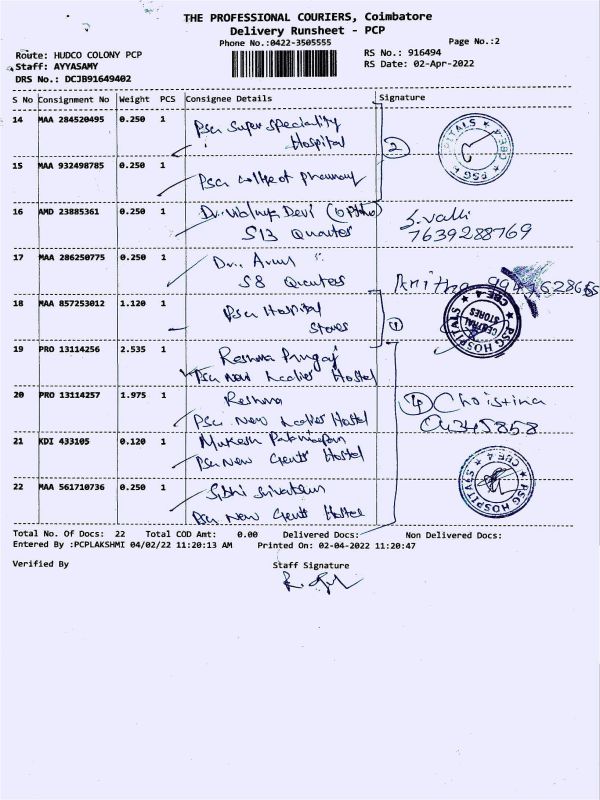 THE PROFESSIONAL COURIERS, Coimbatore
Delivery Runsheet - PCP
Phone No.:0422-3505555
Page No.:2
Route: HUDCO COLONY PCP
RS No.: 916494
Staff: AYYASAMY
RS Date: 02-Apr-2022
DRS No.: DCJB91649402
S No Consignment No Weight PCS Consignee Details Signature
14 MAA 284520495 0.250 1 PSG Super Speciality
Hospital
2
15 MAA 932498785 0.250 1 PSG College of Pharmacy
16 AMD 23885361 0.250 1 Devi
S13 Quarters
S. Valli
7639288769
17 MAA 286250775 0.250 1 Dr. Arul
S8 Quarters
Anitha
18 MAA 857253012 1.120 1 PSG Hospital
Stores
1
PSG HOSPITALS CBE 4
CENTRAL STORES
19 PRO 13114256 2.535 1 Reshma
PSG New Ladies Hostel
20 PRO 13114257 1.975 1 Reshma
PSG New Ladies Hostel
4 Christina
21 KDI 433105 0.120 1 Mukesh
PSG New Gents Hostel
22 MAA 561710736 0.250 1 Sibhi Srivatsun
PSG New Gents Hostel
PSG HOSPITALS CBE 4
Total No. Of Docs: 22 Total COD Amt: 0.00 Delivered Docs: Non Delivered Docs:
Entered By :PCPLAKSHMI 04/02/22 11:20:13 AM Printed On: 02-04-2022 11:20:47
Verified By Staff Signature